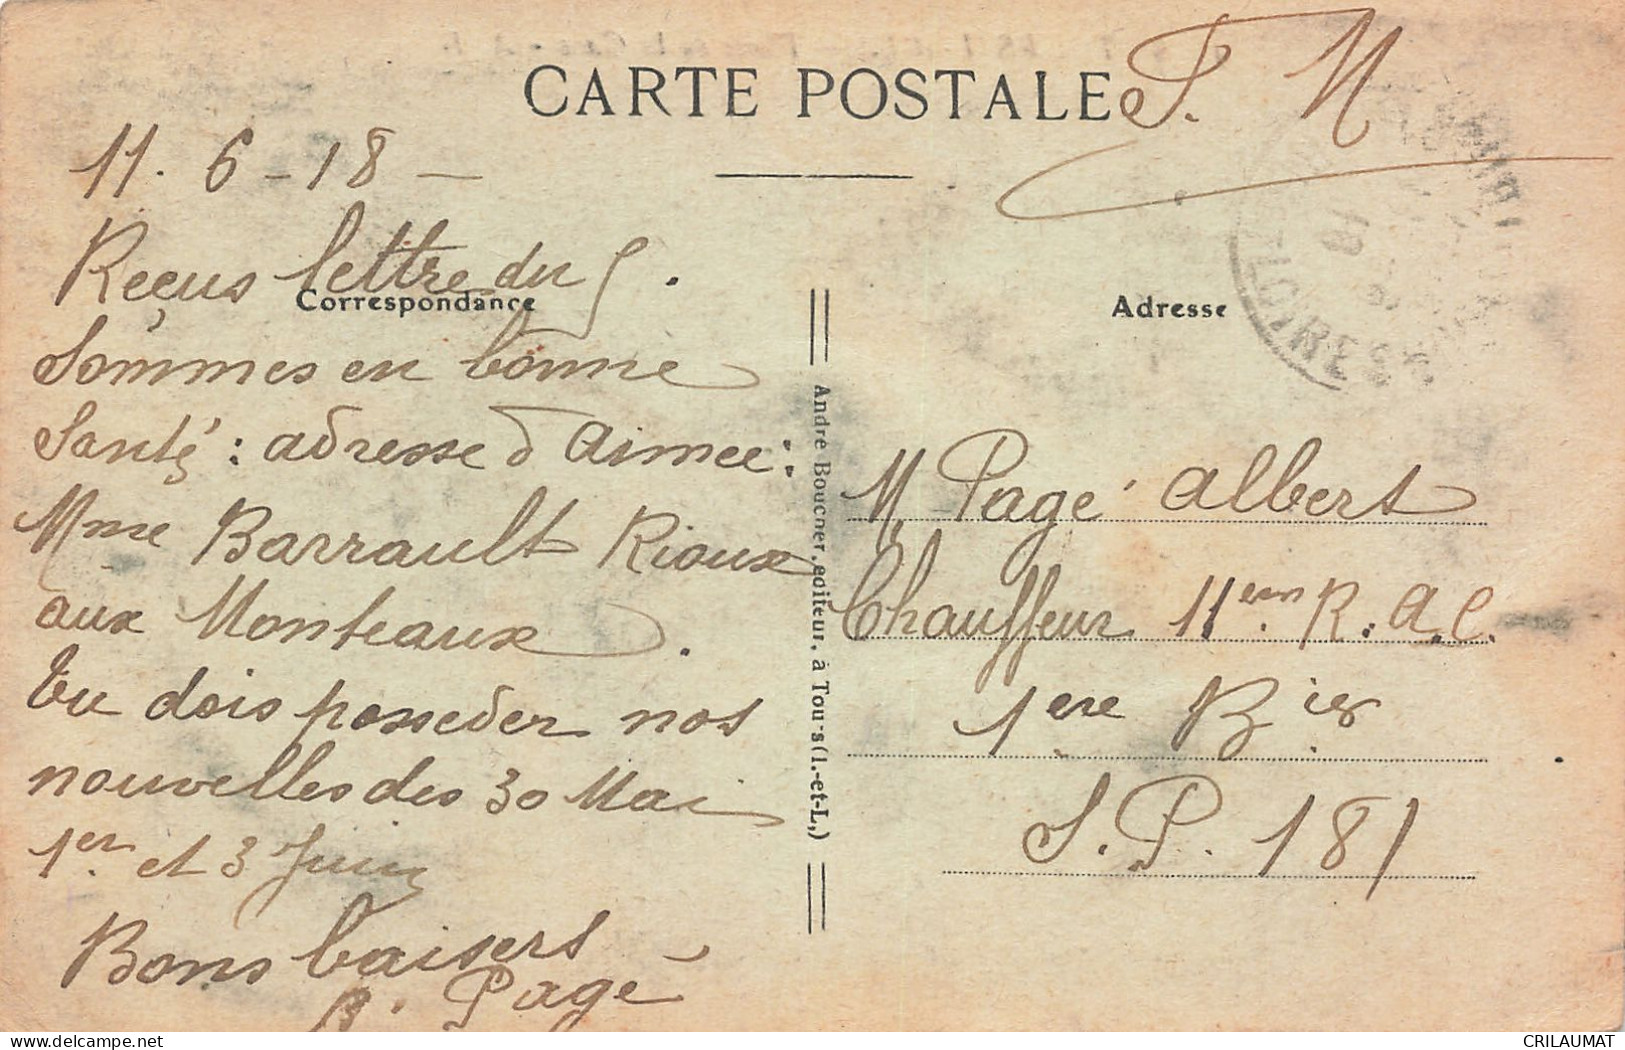 CARTE POSTALE
F. M
11. 6 - 18 -
Reçus lettre du 5.
Correspondance
Sommes en bonne
Santé : adresse d Aimee :
Mme Barrault Rioux
aux Monteaux.
Tu dois posseder nos
nouvelles des 30 Mai
1er et 3 Juin
Bons baisers
Pagé
André Boucher, editeur, à Tours (I.-et-L.)
Adresse
M. Pagé Albert
Chauffeur 11em R. A. C.
1ere Bie
S. P. 181
CRILAUMAT